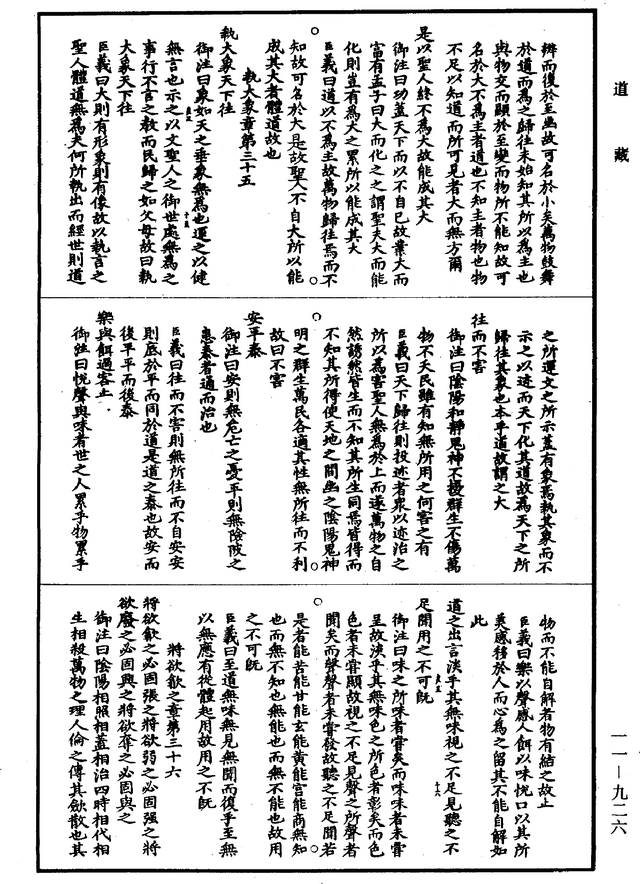 道藏
辨而復於至幽故可名於小矣萬物皷舞
於道而為之歸往未始知其所以為主也
與物交而顯於至變而物所不能知故可
名於大不為主者道也不知主者物也物
不足以知道而所可見者大而無方爾
是以聖人終不為大故能成其大
御注曰功蓋天下而以不自已故業大而
富有孟子曰大而化之之謂聖夫大而能
化則豈有為大之累所以能成其大
臣義曰道以不為主故萬物歸往焉而不
知故可名於大是故聖人不自大所以能
成其大者體道故也
執大象章第三十五
執大象天下往
御注曰象如天之垂象無為也運之以健
無言也示之以文聖人之御世處無為之
事行不言之教而民歸之如父母故曰執
大象天下往
臣義曰大則有形象則有像故以執言之
聖人體道無為夫何所執出而經世則道
之所運文之所示蓋有象焉執其象而不
示之以迹而天下化其道故為天下之所
歸往其象也本乎道故謂之大
往而不害
御注曰陰陽和靜鬼神不擾群生不傷萬
物不夭民雖有知無所用之何害之有
臣義曰天下歸往則投迹者衆以迹治之
所以為害聖人無為於上而遂萬物之自
然誘然皆生而不知其所生同焉皆得而
不知其所得使天地之間幽之陰陽鬼神
明之群生萬民各適其性無所往而不利
故曰不害
安平泰
御注曰安則無危亡之憂平則無險陂之
患泰者通而治也
臣義曰往而不害則無所往而不自安安
則底於平而同於道是道之泰也故安而
後平平而後泰
樂與餌過客止
御註曰悅聲與味者世之人累乎物累乎
物而不能自解者物有結之故止
臣義曰樂以聲感人餌以味悅口以其所
美感移於人而心為之留其不能自解如
此
道之出言淡乎其無味視之不足見聽之不
足聞用之不可旣
御注曰味之所味者甞矣而味味者未甞
呈故淡乎其無味色之所色者彰矣而色
色者未甞顯故視之不足見聲之所聲者
聞矣而聲聲者未甞發故聽之不足聞若
是者能苦能甘能玄能黄能宮能商無知
也而無不知也無能也而無不能也故用
之不可旣
臣義曰至道無味無見無聞而復乎至無
以無應有從體起用故用之不旣
將欲歙之章第三十六
將欲歙之必固張之將欲弱之必固强之將
欲廢之必固興之將欲奪之必固與之
御注曰陰陽相照相蓋相治四時相代相
生相殺萬物之理人倫之傳其歛散也其
一一—九二六